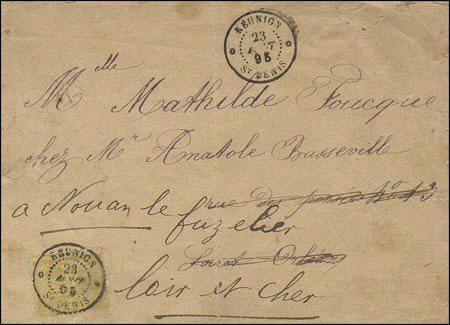 RÉUNION
23
AOUT
95
ST DENIS
Mlle Mathilde Foucque
chez Mr Anatole Basseville
rue du
a Nouan le fuzelier
Loiret Orléans
loir et cher
RÉUNION
23
AOUT
95
ST DENIS